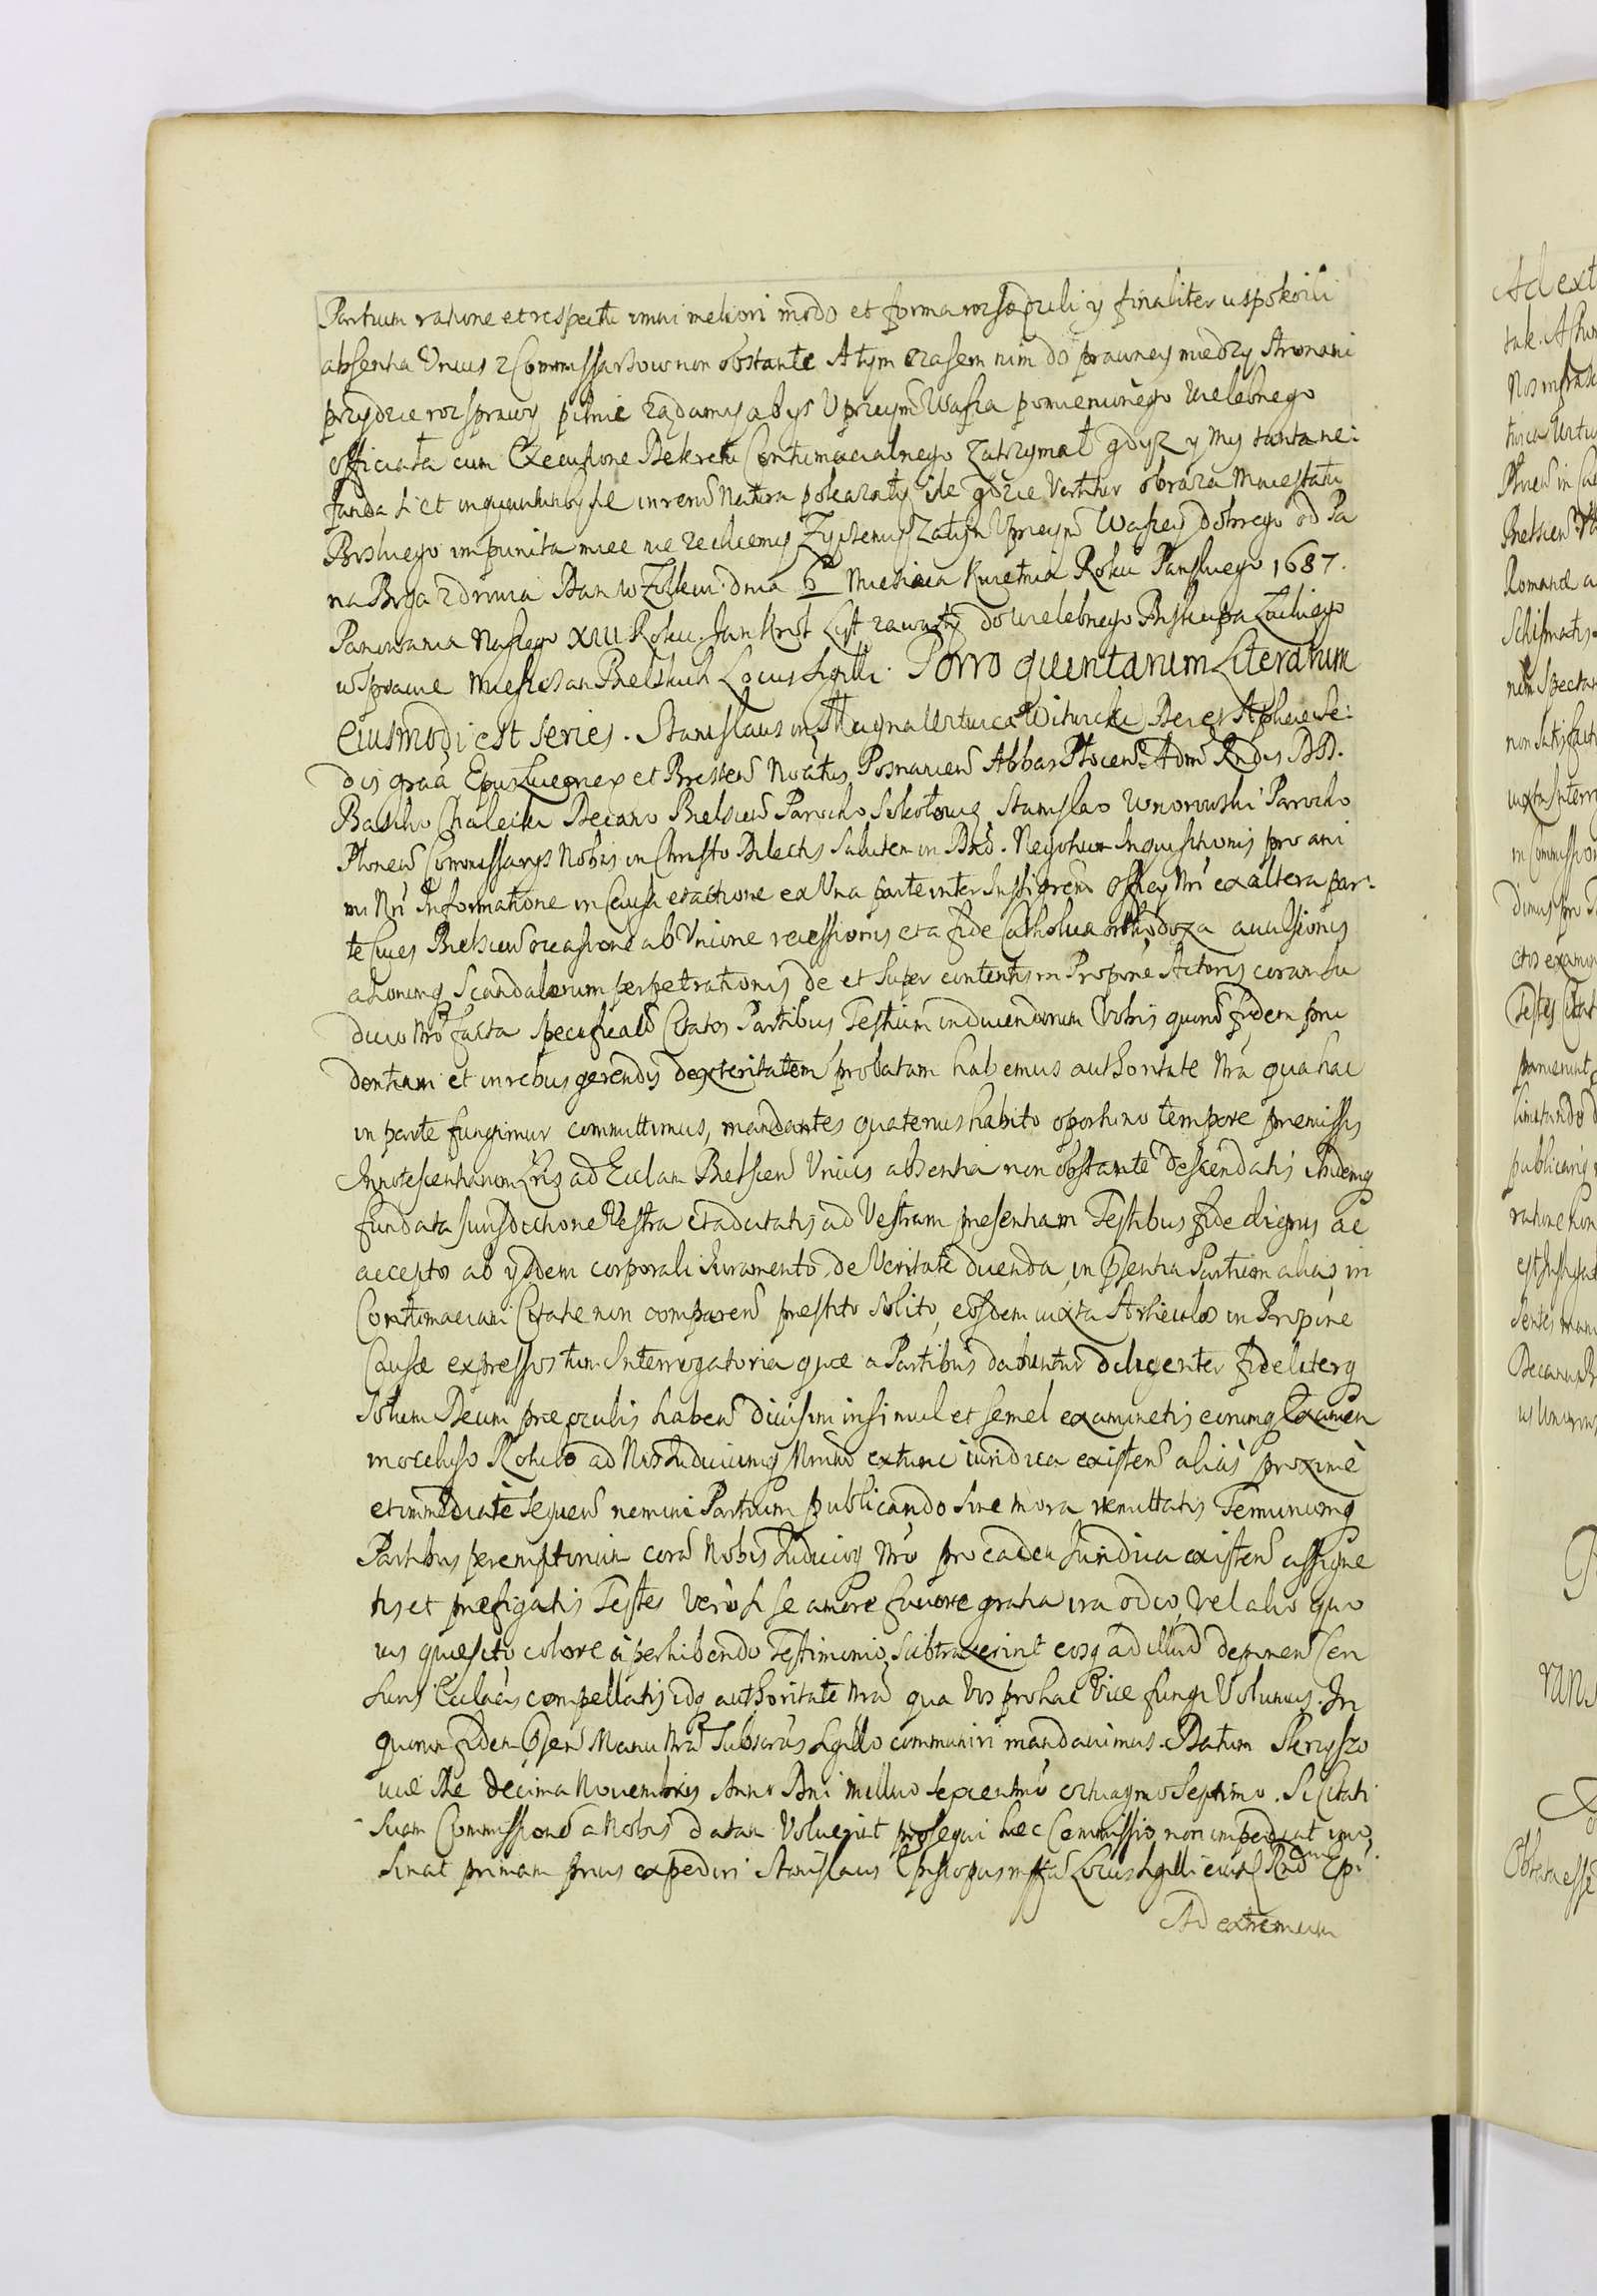 Partium ratione et respectu omni meliori modo et forma rozsądzili y finaliter uspokoili
absentia Unius z Commissarzow non obstante A tym czasem nim do prawney miedzy Stronami
przydzie rozsprawy pilnie żądamy abyś Uprzeym Wasza pomienionego wielebnego
officiała cum Executione Dekretu Contumacialnego zatrzymał gdyż y My tanta ne:
fanda si et in quantum by sie in rerū Natura pokazały ile gdzie Vertitur obraza Maiestatu
Boskiego impunita miec nie zechcemy Zyczemy zatym Uprzeym Waszey dobrego od Pa
na Boga zdrowia Dan w Zołkwi dnia 6 Miesiaca Kwietnia Roku Panskiego 1687.
Panowania Naszego XIII Roku. Jan Krol List zawarty do Wielebnego Biskupa Łuckiego
w sprawie Mieszczan Bielskich Locus Sigilli. Porro quintarum Literarum
eiusmodi est series. Stanislaus in Magna Witwica Witwicki Dei et Aplicae Se:
dis graā Epus Luceorien et Bresten Noātus Posnanien Abbas Plocen. Adm Rndis DD.
Basilio Chalecki Decano Bielscen Parocho Sokołowien, Stanislao Wnorowski Parocho
Plonen Commissarys Nobis in Christo Dilectis Salutem in Dno. Negotium Inquisitionis pro ani
mi Nri Informatione in Causa et actione ex Una parte inter Instigrem Officy Nri ex altera par:
te Cives Bielscen occasione ab Unione recessionis et a fide Catholica orthodoxa avulsionis
ahonimq Scandalorum perpetrationis de et super contentis in Propine Actoris coram Iu
dicio Nro facta specificatis Citatos Partibus Testium inducendorum Vobis quorū fidem pru
dentiam et in rebus gerendis dexteritatem probatam habemus authoritate Nra qua hac
in parte fungimur committimus, mandantes quatenus habito oportuno tempore premissis
Innotescentiarum Lris ad Eclam Bielscen Unius absentia non obstante descendatis ibidemq
fundata Iurisdictione Vestra et adcitatis ad Vestram presentiam Testibus fide dignis ac
accepto ab ysdem corporali Iuramento de Veritate dicenda, in Psentia Partium alias in
Contumaciam Citatae non comparen prestito solito, eosdem iuxta Articulos in Propine
Causae expressos tum Interrogatoria quae a Partibus dabuntur diligenter fideliterq
Solum Deum prae oculis haben divisim insimul et semel examinetis eorumq Examen
in occluso Rotulo ad Nos Iudiciumq Nrum extunc iuridica existen alias proxime
et immediate sequen nemini Partium publicando sine mora remittatis Terminumq
Partibus peremptorium corā Nobis Iudicioq Nro pro eadem Iuridica existen assigne
tis et praefigatis Testes vero si se amore favore gratia ira odio, vel alio quo
vis quaesito colore a perhibendo Testimonio subtraxerint eosq ad illud deponen Cen
suris Eclacis compellatis idq authoritate Nra qua Vos pro hac Vice fungi Volumus. In
quorum fidem Psen Manu Nra Subscrits Sigillo communiri mandavimus. Datum Skryszo
viae Die Decima Novembris Anno Dni Millmo sexcentmo octuagmo Septimo. Si Citati
Suam Commissionē a Nobis datam Voluerint prosequi haec Commissio non impediat imo
sinat primam prius expediri Stanislaus Episcopus mpp Locus Sigilli eiusd Rnd Epi
Ad extremum